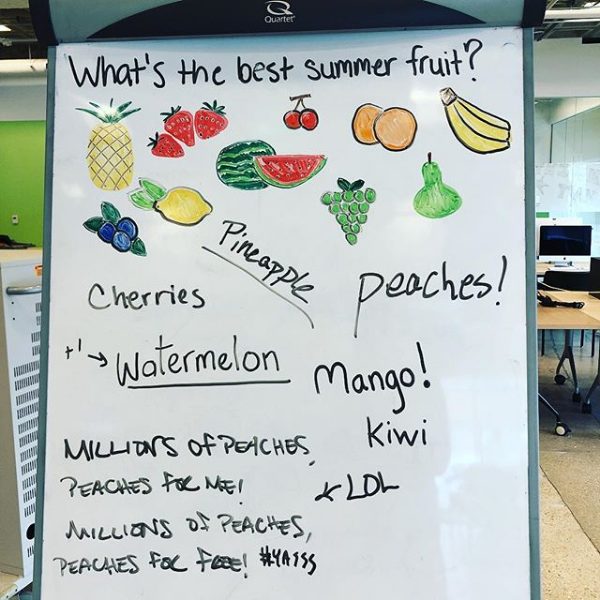 Quartet
What's the best summer fruit?
Pineapple
Cherries
peaches!
+1 → Watermelon
Mango!
Kiwi
MILLIONS OF PEACHES,
PEACHES FOR ME!
← LOL
MILLIONS OF PEACHES,
PEACHES FOR FREE! #YASSS